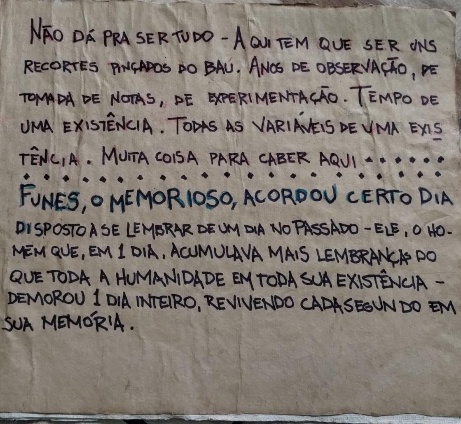 NÃO DÁ PRA SER TUDO - AQUI TEM QUE SER UNS
RECORTES PINÇADOS DO BAU. ANOS DE OBSERVAÇÃO, DE
TOMADA DE NOTAS, DE EXPERIMENTAÇÃO. TEMPO DE
UMA EXISTÊNCIA. TODAS AS VARIÁVEIS DE UMA EXIS
TÊNCIA. MUITA COISA PARA CABER AQUI ......
FUNES, O MEMORIOSO, ACORDOU CERTO DIA
DISPOSTO A SE LEMBRAR DE UM DIA NO PASSADO - ELE, O HO-
MEM QUE, EM 1 DIA, ACUMULAVA MAIS LEMBRANÇAS DO
QUE TODA A HUMANIDADE EM TODA SUA EXISTÊNCIA -
DEMOROU 1 DIA INTEIRO, REVIVENDO CADA SEGUNDO EM
SUA MEMÓRIA.